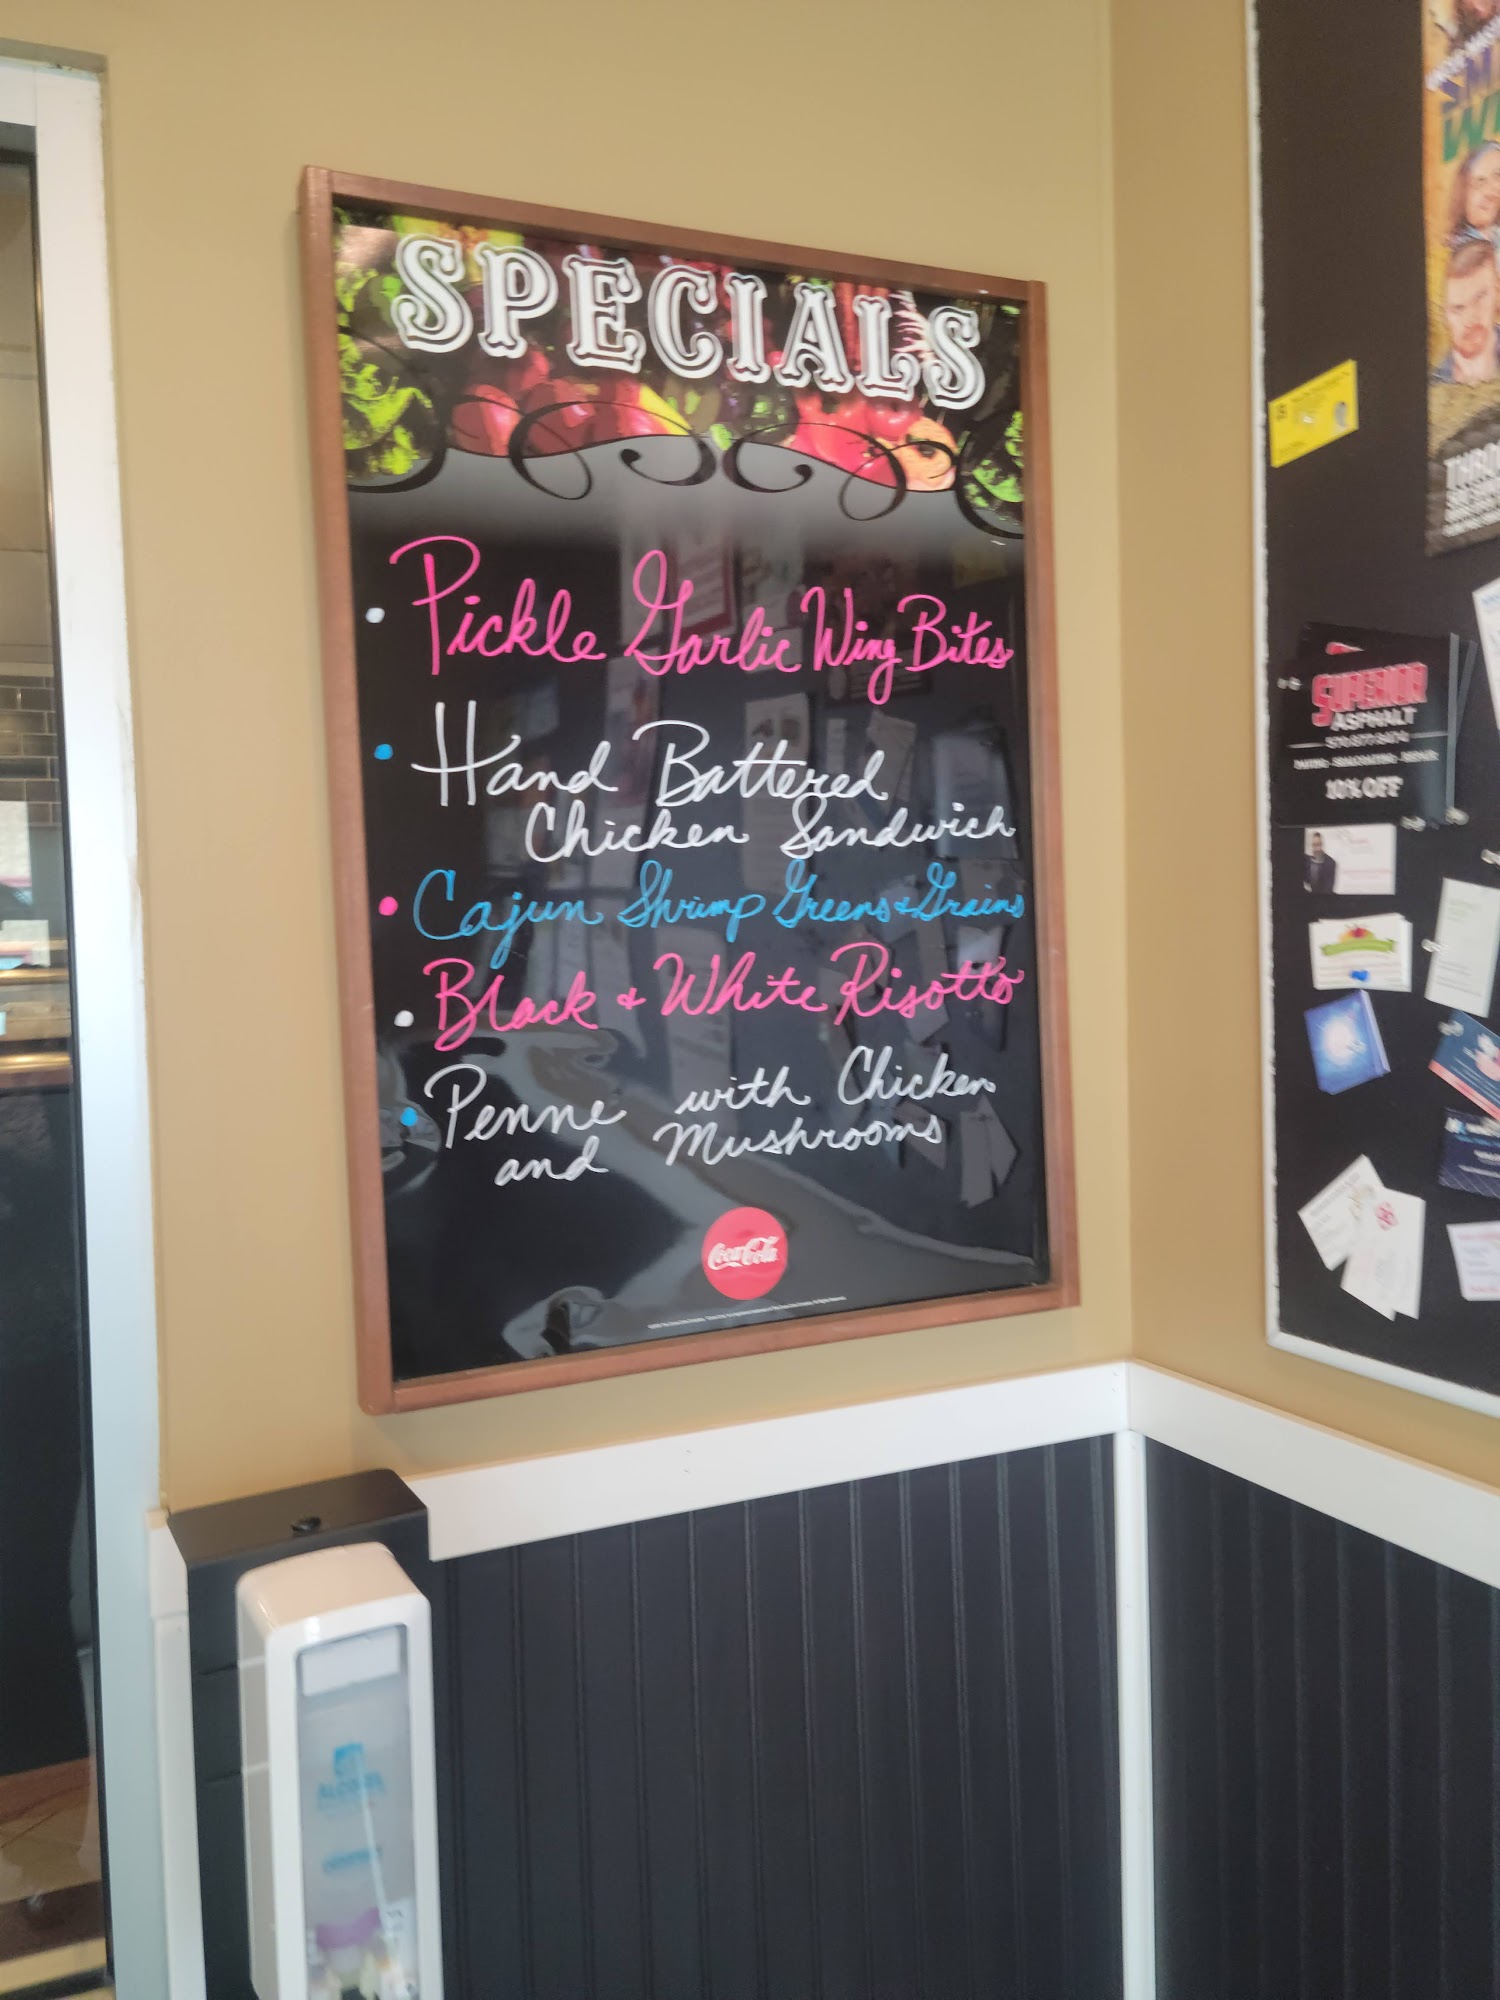 SPECIALS
Pickle Garlic Wing Bites
Hand Battered
Chicken Sandwich
Cajun Shrimp Greens & Grains
Black & White Risotto
Penne with Chicken
and Mushrooms
Coca-Cola
SUPERIOR
ASPHALT
10% OFF